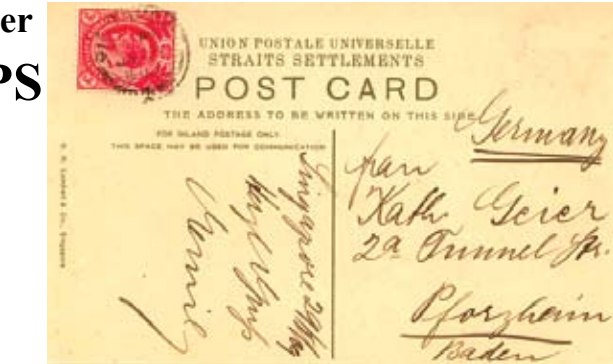 er
PS
UNION POSTALE UNIVERSELLE
STRAITS SETTLEMENTS
POST CARD
THE ADDRESS TO BE WRITTEN ON THIS SIDE
FOR INLAND POSTAGE ONLY.
THIS SPACE MAY BE USED FOR COMMUNICATION
G. R. Lambert & Co., Singapore
Singapore
Germany
Frau
Kath Geier
2a Tunnel Str.
Pforzheim
Baden